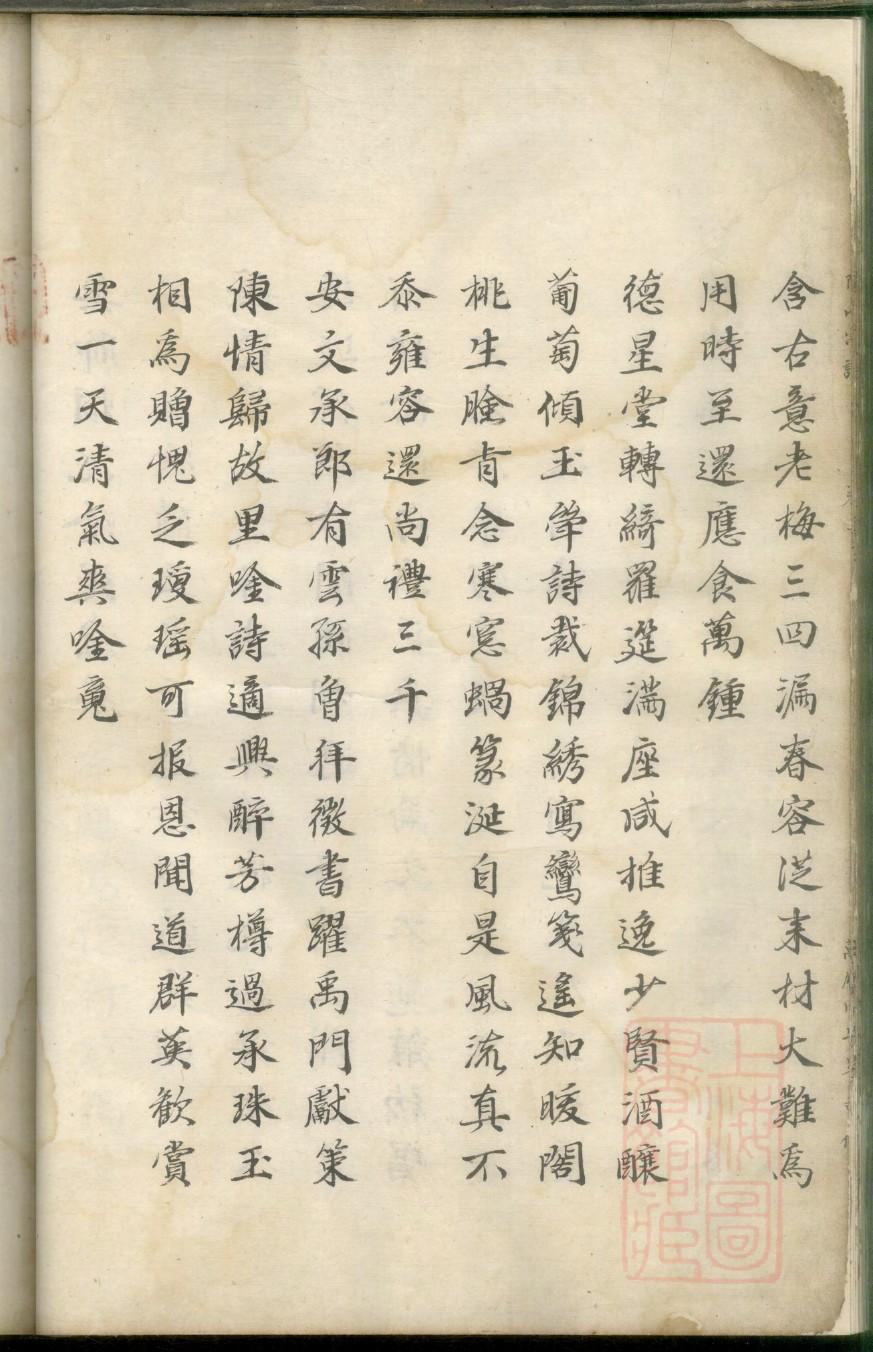 含古意老梅三四漏春容從來材大難爲
用時至還應食萬鍾
德星堂轉綺羅筵滿座咸推逸少賢酒釀
葡萄傾玉斝詩裁錦綉寫鸞箋遙知暖閣
桃生臉肯念寒窓蝸篆涎自是風流真不
忝雍容還尚禮三千
安文承郎有雲孫魯拜徵書躍禹門獻策
陳情歸故里唫詩適興醉芳樽過承珠玉
相爲贈愧乏瓊瑤可报恩聞道群英歡賞
雪一天清氣爽唫䰟
上海圖書館藏